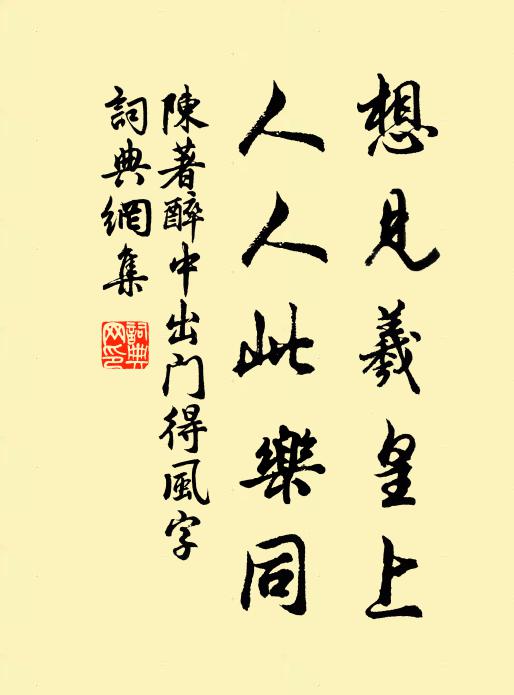 想見羲皇上
人人此樂同
陳著醉中出門得風字
詞典網集
詞典网印